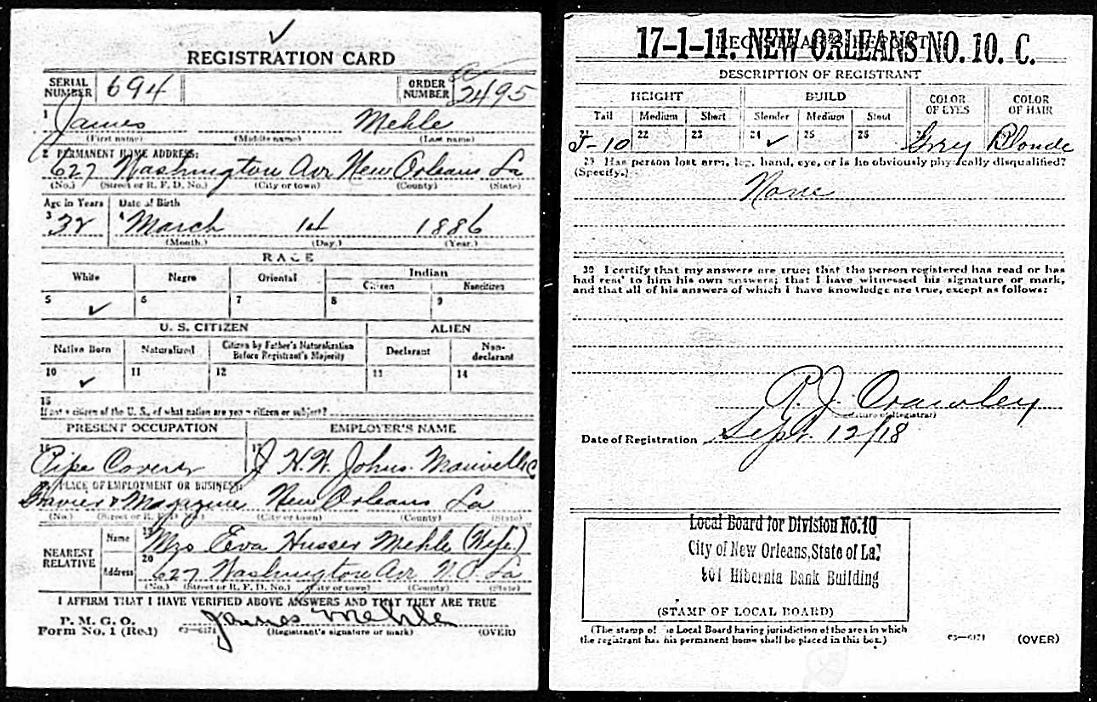 REGISTRATION CARD
SERIAL NUMBER 694 ORDER NUMBER 2495
1 James Mehle
(First name) (Middle name) (Last name)
2 PERMANENT HOME ADDRESS:
627 Washington Av New Orleans La
(No.) (Street or R. F. D. No.) (City or town) (County) (State)
Age in Years Date of Birth
3 32 4 March 14 1886
(Month.) (Day.) (Year.)
RACE
White Negro Oriental Indian
Citizen Noncitizen
5 ✓ 6 7 8 9
U. S. CITIZEN ALIEN
Native Born Naturalized Citizen by Father's Naturalization Before Registrant's Majority Declarant Non-declarant
10 ✓ 11 12 13 14
15
If not a citizen of the U. S., of what nation are you a citizen or subject?
PRESENT OCCUPATION EMPLOYER'S NAME
16 Pipe Coverer 17 H. W. Johns Manville Co
PLACE OF EMPLOYMENT OR BUSINESS:
Gravier & Magazine New Orleans La
(No.) (Street or R. F. D. No.) (City or town) (County) (State)
NEAREST RELATIVE Name 19 Mrs Eva Husser Mehle (Wife)
Address 20 627 Washington Av N.O. La
(No.) (Street or R. F. D. No.) (City or town) (County) (State)
I AFFIRM THAT I HAVE VERIFIED ABOVE ANSWERS AND THAT THEY ARE TRUE
P. M. G. O.
Form No. 1 (Red) James Mehle
(Registrant's signature or mark) (OVER)
17-1-11. NEW ORLEANS NO. 10. C.
DESCRIPTION OF REGISTRANT
HEIGHT BUILD COLOR OF EYES COLOR OF HAIR
Tall Medium Short Slender Medium Stout
21 5-10 22 23 24 ✓ 25 26 Grey Blonde
29 Has person lost arm, leg, hand, eye, or is he obviously physically disqualified?
(Specify.) None
30 I certify that my answers are true; that the person registered has read or has
had read to him his own answers; that I have witnessed his signature or mark,
and that all of his answers of which I have knowledge are true, except as follows:
R. J. Crawley
(Signature of Registrar)
Date of Registration Sept 12/18
Local Board for Division No. 10
City of New Orleans, State of La.
801 Hibernia Bank Building
(STAMP OF LOCAL BOARD)
(The stamp of the Local Board having jurisdiction of the area in which
the registrant has his permanent home shall be placed in this box.)
03—6171 (OVER)